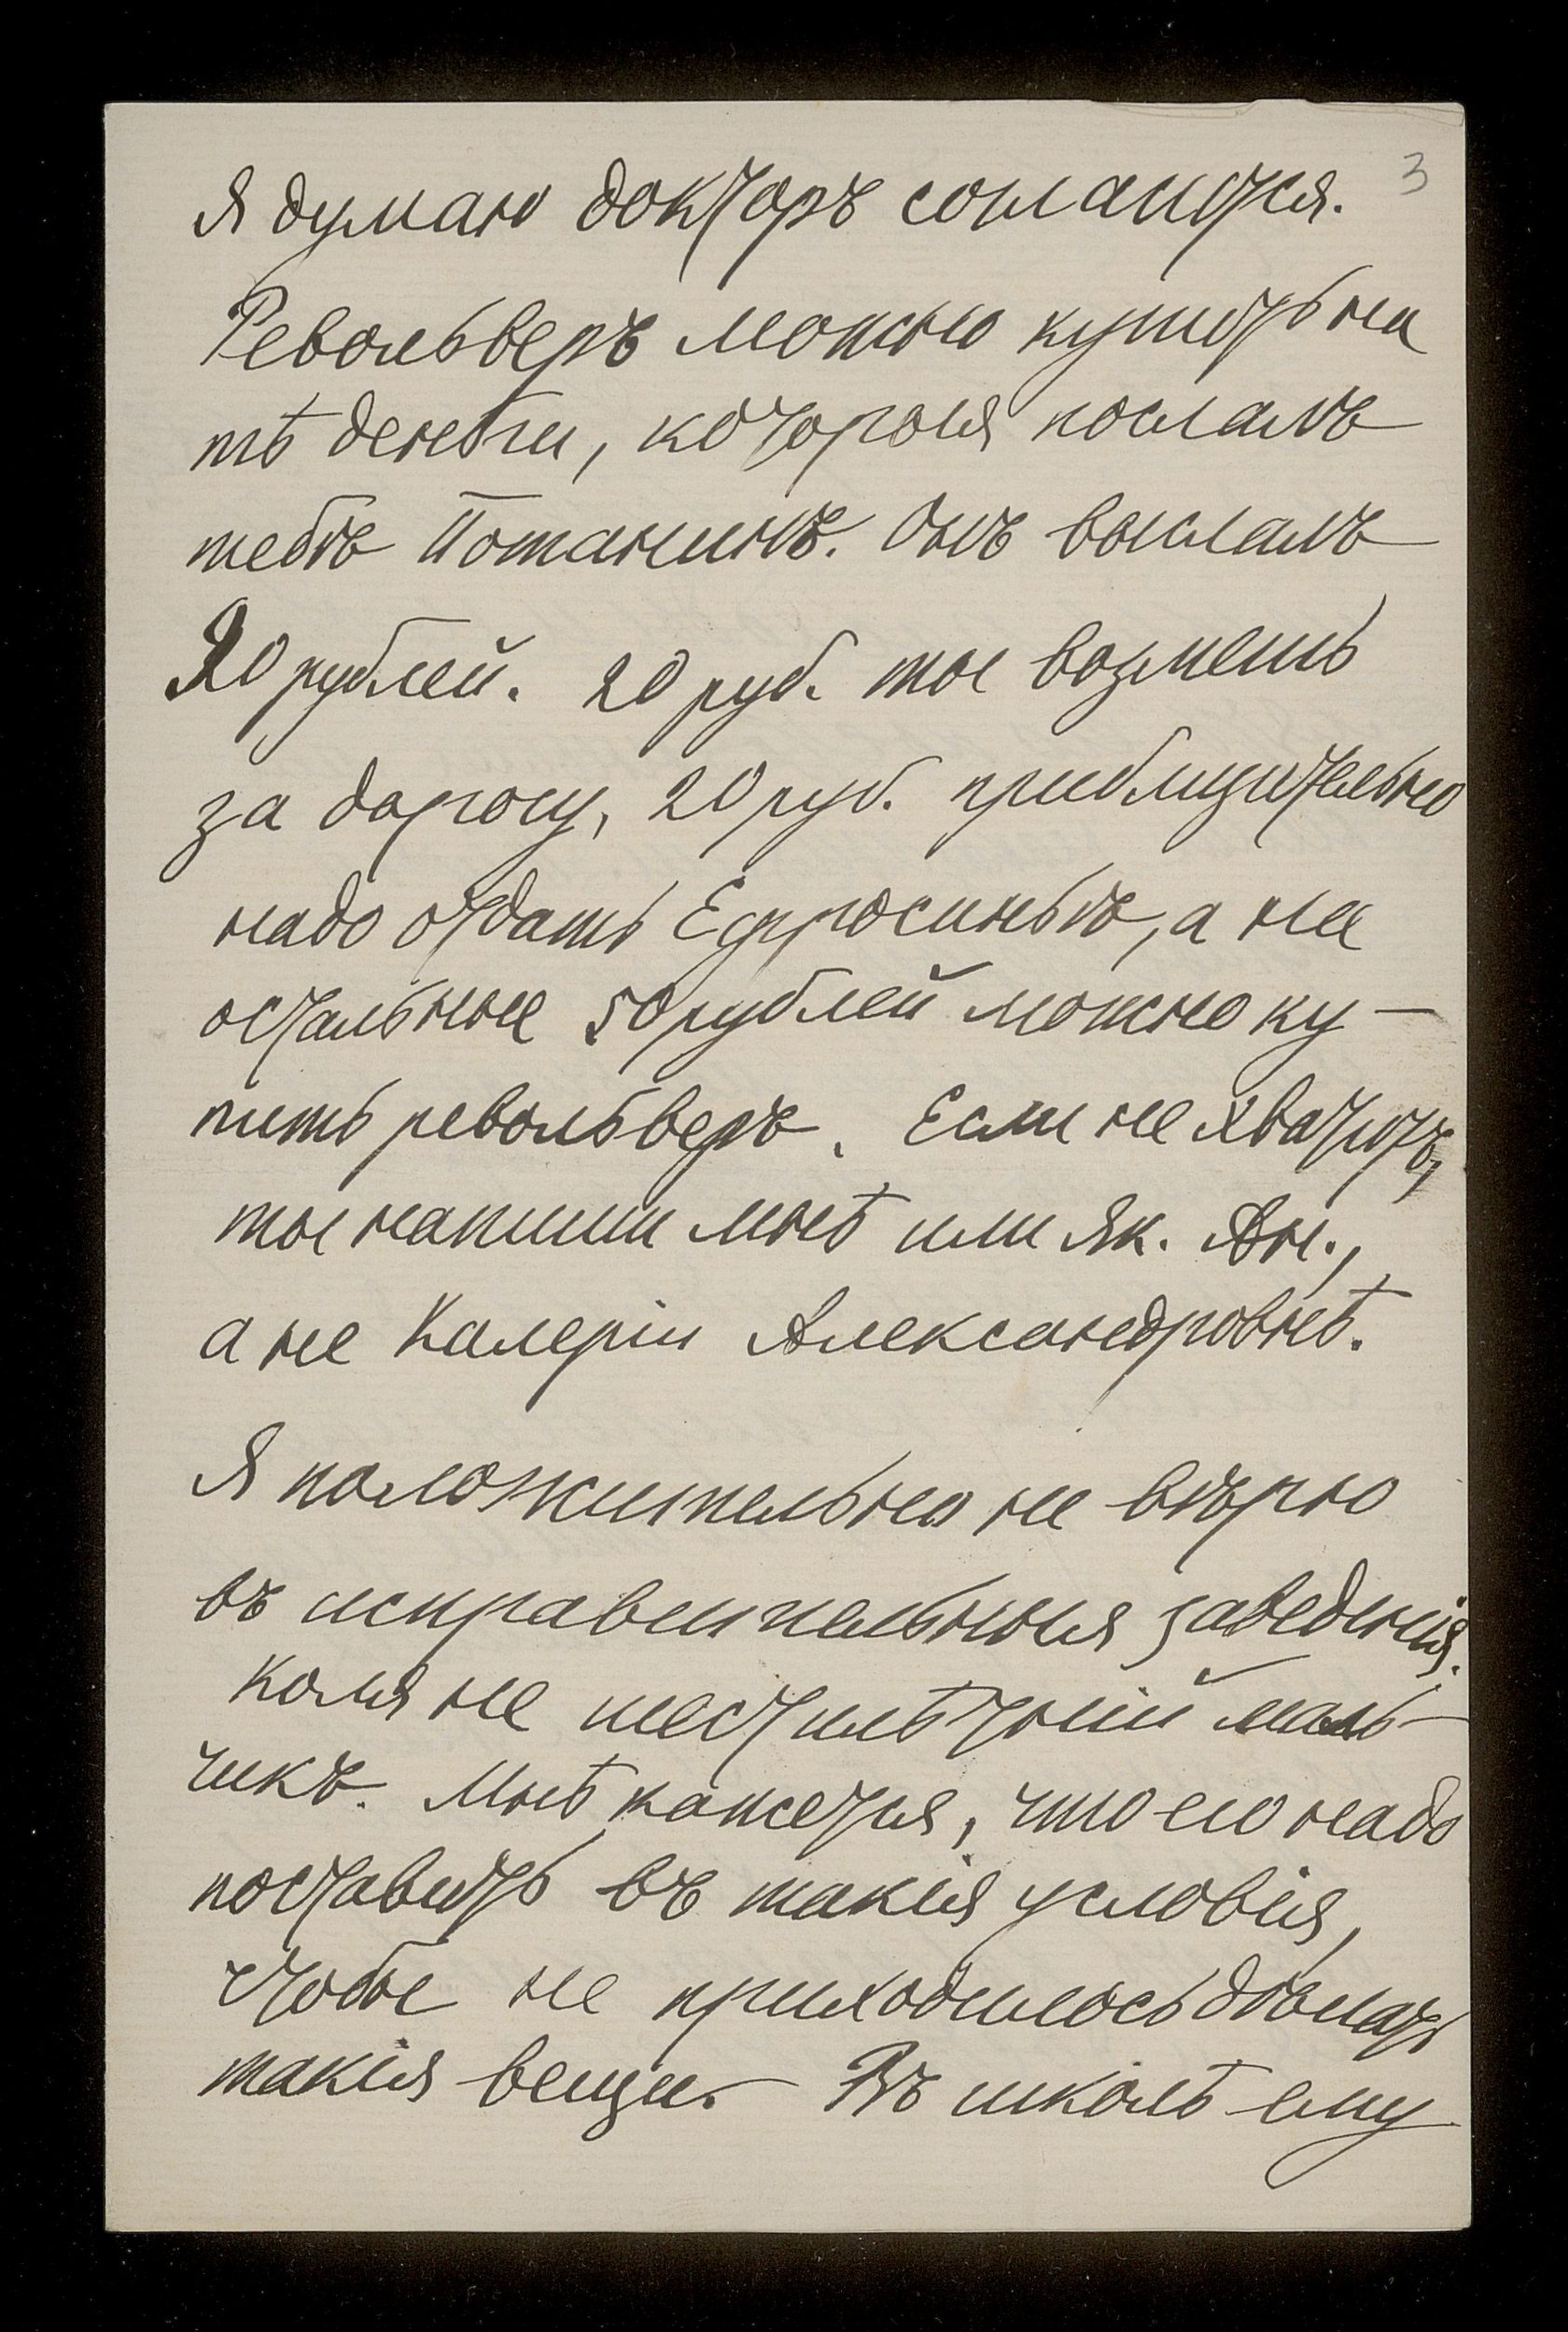 3
Я думаю докторъ согласится.
Револьверъ можно купить на
тѣ деньги, которыя послалъ
тебѣ Потанинъ. Онъ выслалъ
90 рублей. 20 руб. ты возмешь
за дорогу, 20 руб. приблизительно
надо отдать Ефросиньѣ, а на
остальные 50 рублей можно ку-
пить револьверъ. Если не хватитъ,
ты напиши мнѣ или Як. Ан.,
а не Калеріи Александровнѣ.
Я положительно не вѣрю
въ исправительныя заведенія.
Коля не шестилѣтній маль-
чикъ. Мнѣ кажется, что его надо
поставить въ такія условія,
чтобы не приходилось дѣлать
такія вещи. Въ школѣ ему